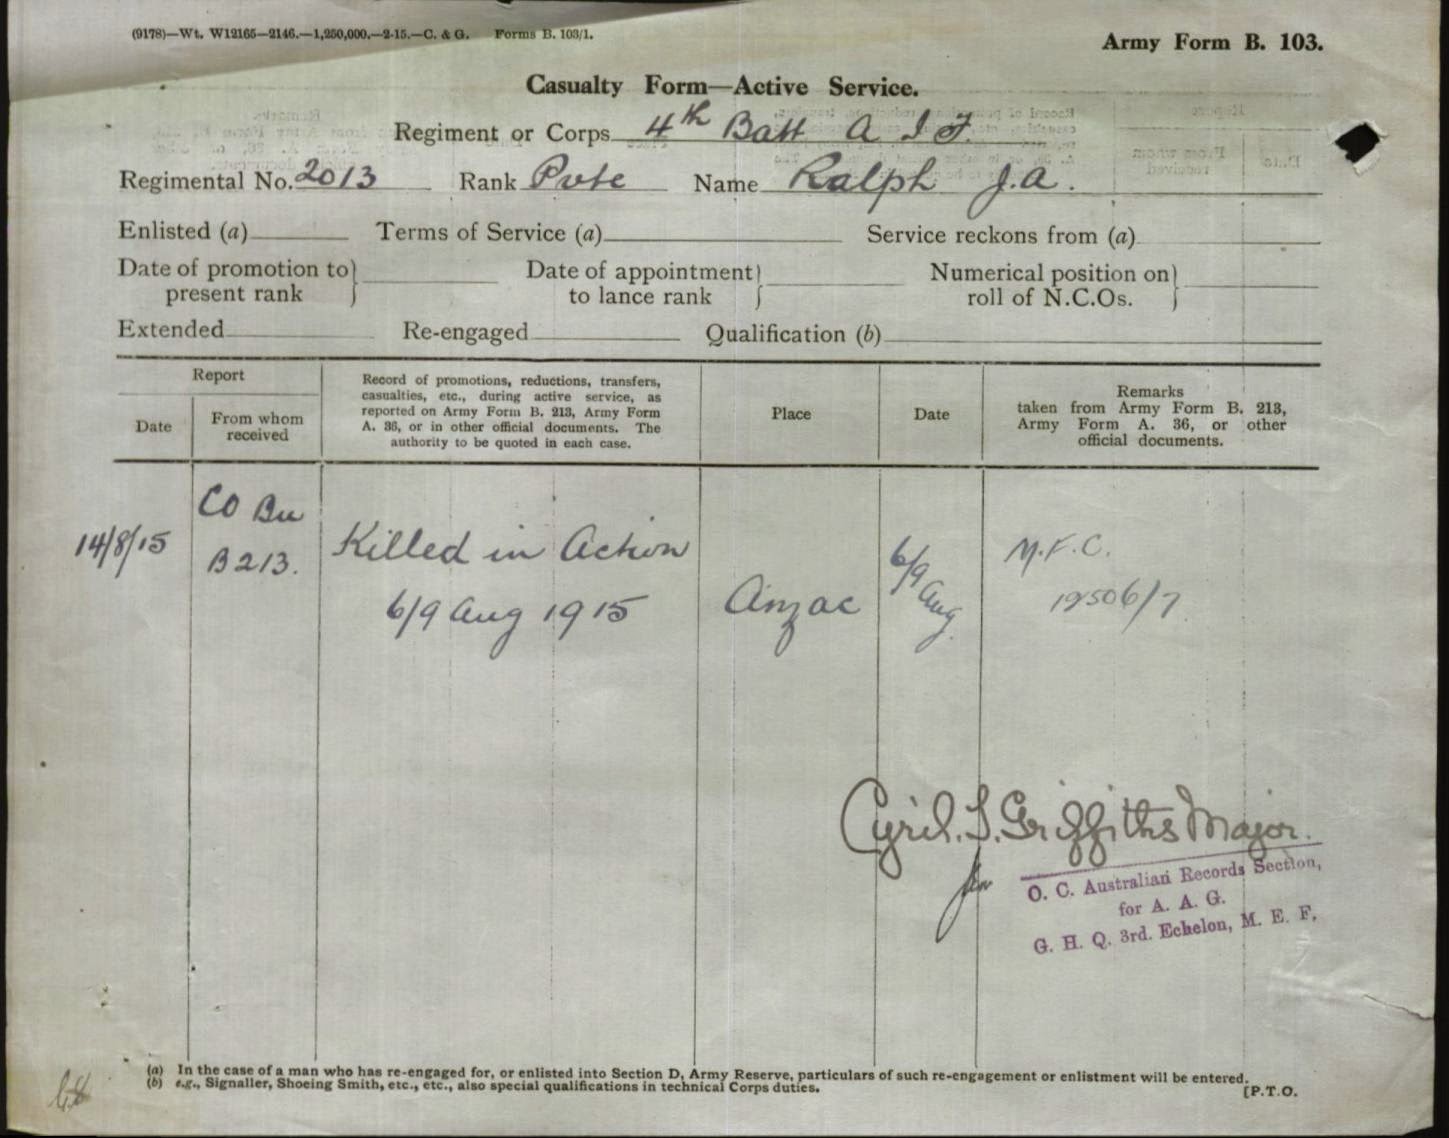 (9178)—Wt. W12165—2146.—1,250,000.—2-15.—C. & G. Forms B. 103/1.
Army Form B. 103.
Casualty Form—Active Service.
Regiment or Corps 4th Batt A I F.
Regimental No. 2013 Rank Pvte Name Ralph J.A.
Enlisted (a) Terms of Service (a) Service reckons from (a)
Date of promotion to present rank } Date of appointment to lance rank } Numerical position on roll of N.C.Os. }
Extended Re-engaged Qualification (b)
Report
Date
From whom received
Record of promotions, reductions, transfers,
casualties, etc., during active service, as
reported on Army Form B. 213, Army Form
A. 36, or in other official documents. The
authority to be quoted in each case.
Place
Date
Remarks
taken from Army Form B. 213,
Army Form A. 36, or other
official documents.
14/8/15
CO Bn
B213.
Killed in Action
6/9 Aug 1915
Anzac
6/9
Aug.
M.F.C.
Cyril. S. Griffiths Major.
for
O. C. Australian Records Section,
for A. A. G.
G. H. Q. 3rd. Echelon, M. E. F.
(a) In the case of a man who has re-engaged for, or enlisted into Section D, Army Reserve, particulars of such re-engagement or enlistment will be entered.
(b) e.g., Signaller, Shoeing Smith, etc., etc., also special qualifications in technical Corps duties.
[P.T.O.